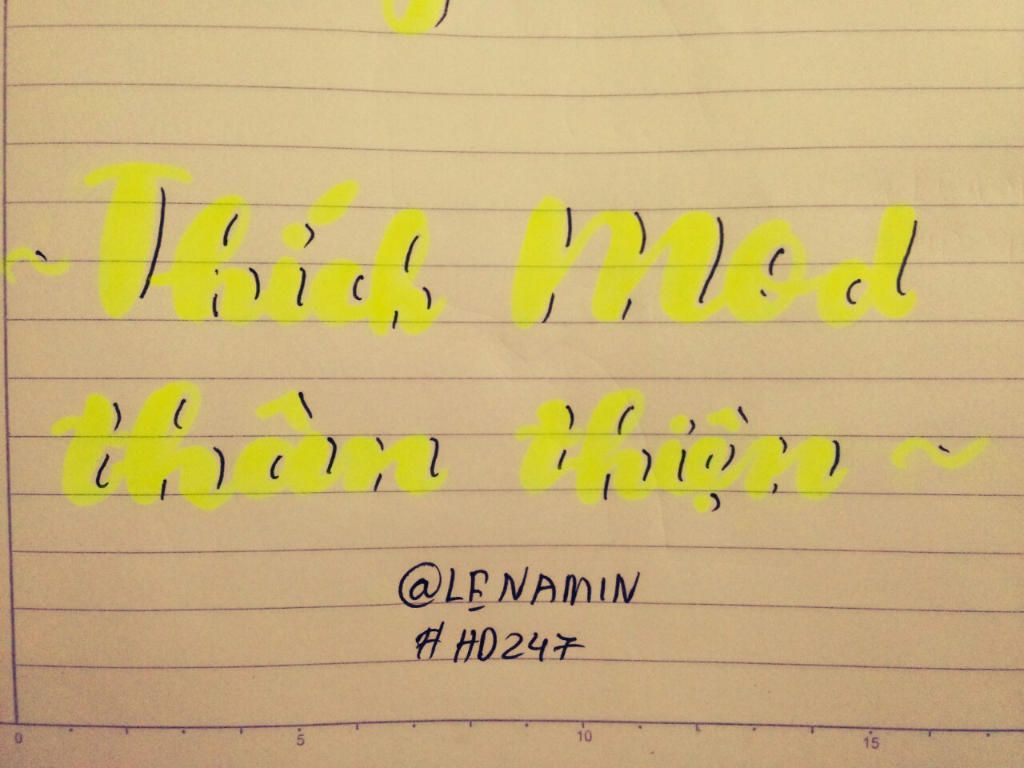 ~ Thích Mod
thân thiện ~
@LENAMIN
#HD247
0 5 10 15